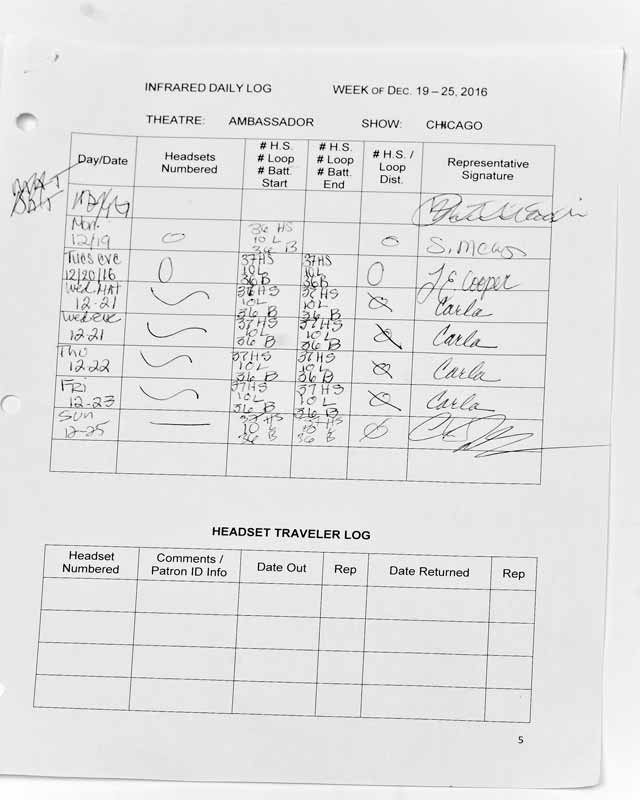 INFRARED DAILY LOG WEEK OF DEC. 19 – 25, 2016
THEATRE: AMBASSADOR SHOW: CHICAGO
Day/Date
Headsets
Numbered
# H.S.
# Loop
# Batt.
Start
# H.S.
# Loop
# Batt.
End
# H.S. /
Loop
Dist.
Representative
Signature
Mon.
12/19
0
36 HS
10 L
36 B
0
Tues eve
12/20/16
0
37 HS
10 L
36 B
37 HS
10 L
36 B
0
J E Cooper
Wed. MAT
12-21
37 HS
10 L
36 B
37 HS
10 L
36 B
Carla
Wed eve
12-21
37 HS
10 L
36 B
37 HS
10 L
36 B
Carla
Thu
12-22
37 HS
10 L
36 B
37 HS
10 L
36 B
Carla
FRI
12-23
37 HS
10 L
36 B
37 HS
10 L
36 B
Carla
Sun
12-25
37 HS
10 L
36 B
37 HS
10 L
36 B
HEADSET TRAVELER LOG
Headset
Numbered
Comments /
Patron ID Info
Date Out
Rep
Date Returned
Rep
5